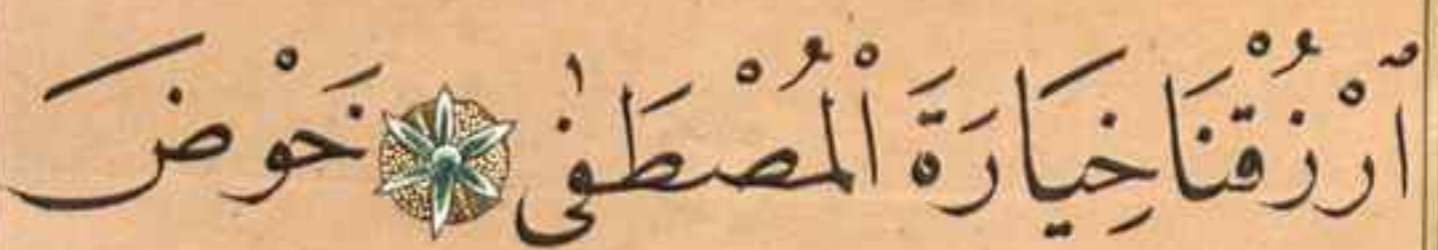 ٱرْزُقْنَا خِيَارَةَ ٱلْمُصْطَفٰى خَوْضَ